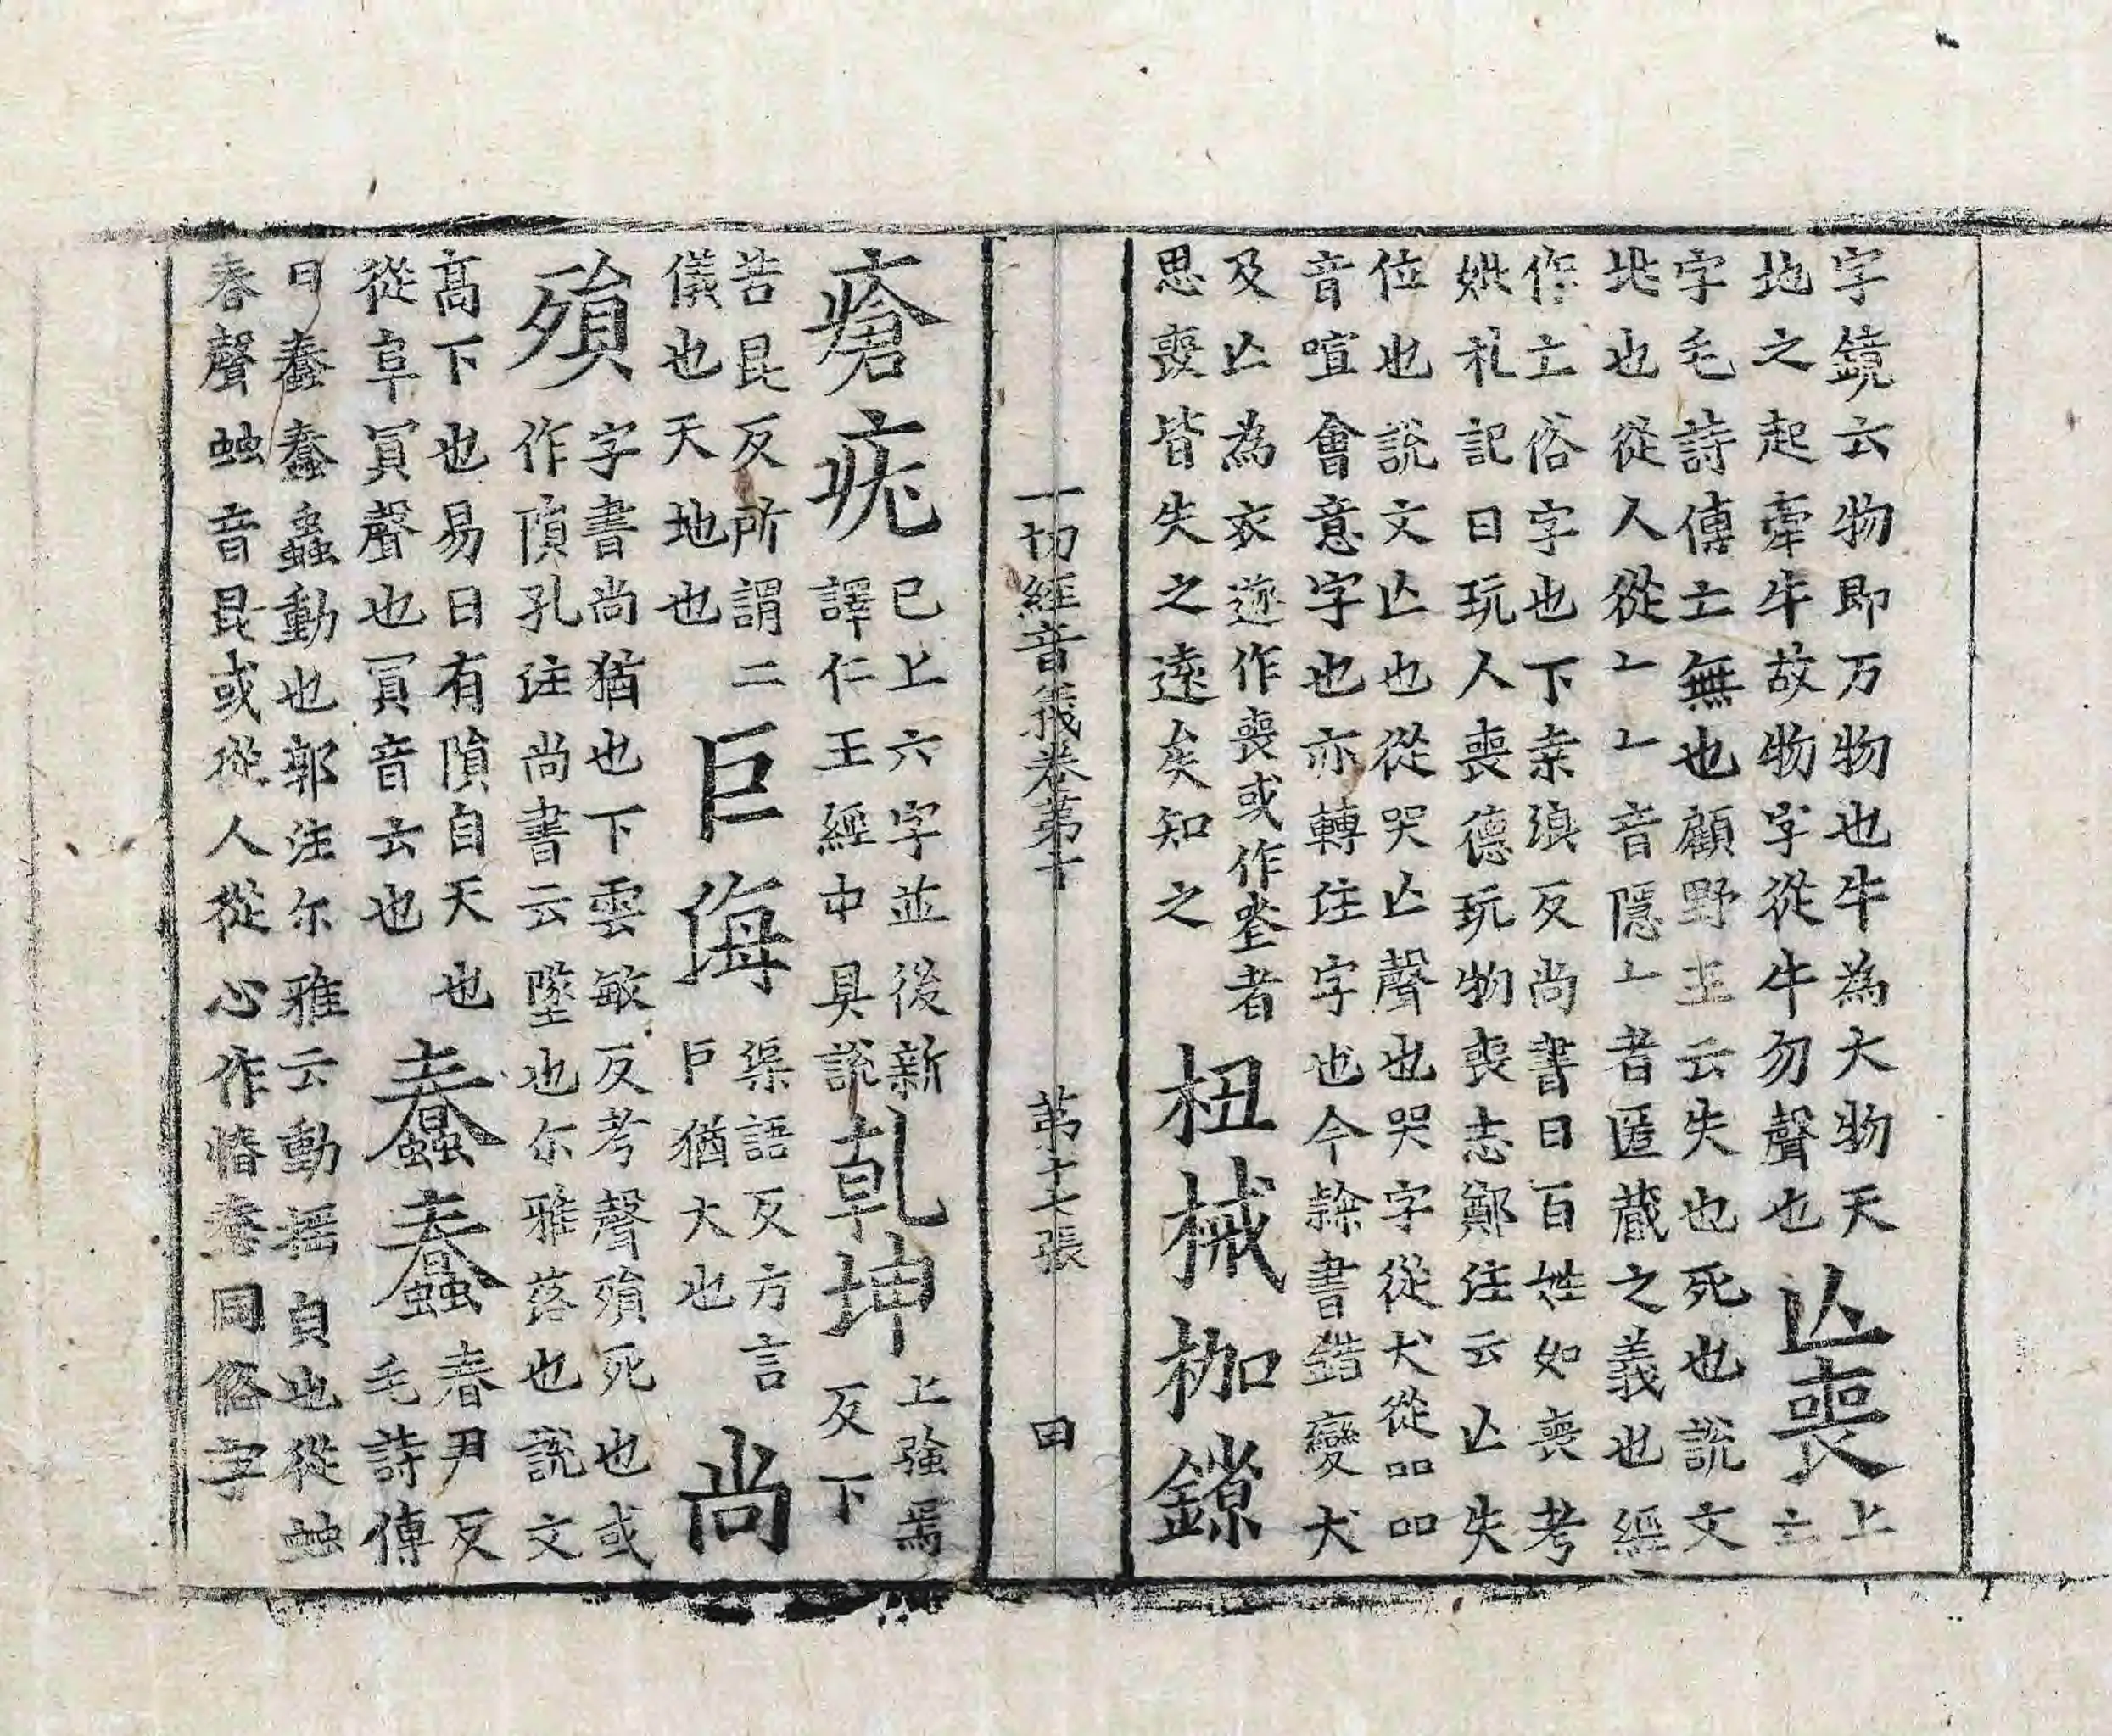 字鏡云物即万物也牛為大物天
地之起牽牛故物字從牛勿聲也
亾喪
上
亡
字毛詩傳亡無也顧野王云失也死也說文
从也從人從𠃊𠃊音隱𠃊者匿藏之義也經
作亡俗字也下桒浪反尚書曰百姓如喪考
妣礼記曰玩人喪德玩物喪志鄭注云亾失
位也說文亾也從哭亾聲也哭字從犬從吅吅
音喧會意字也亦轉注字也今隸書錯變犬
及亾為衣遂作喪或作㘸者
思喪皆失之遠矣知之
杻械枷鎖
一切經音義卷第十 第十七張 曰
瘡疣
已上六字並後新
譯仁王經中具說
乹坤
上強焉
反下
苦昆反所謂二
儀也天地也
巨海
渠語反方言
巨猶大也
尚
殞
字書尚猶也下雲敏反考聲殞死也或
作隕孔注尚書云墜也尔雅落也說文
高下也易曰有隕自天也
從阜貟聲也貟音云也
蠢蠢
春尹反
毛詩傳
曰蠢蠢蟲動也郭注尔雅云動揺㒵也從䖵
春聲䖵音昆或從人從心作惷惷同俗字